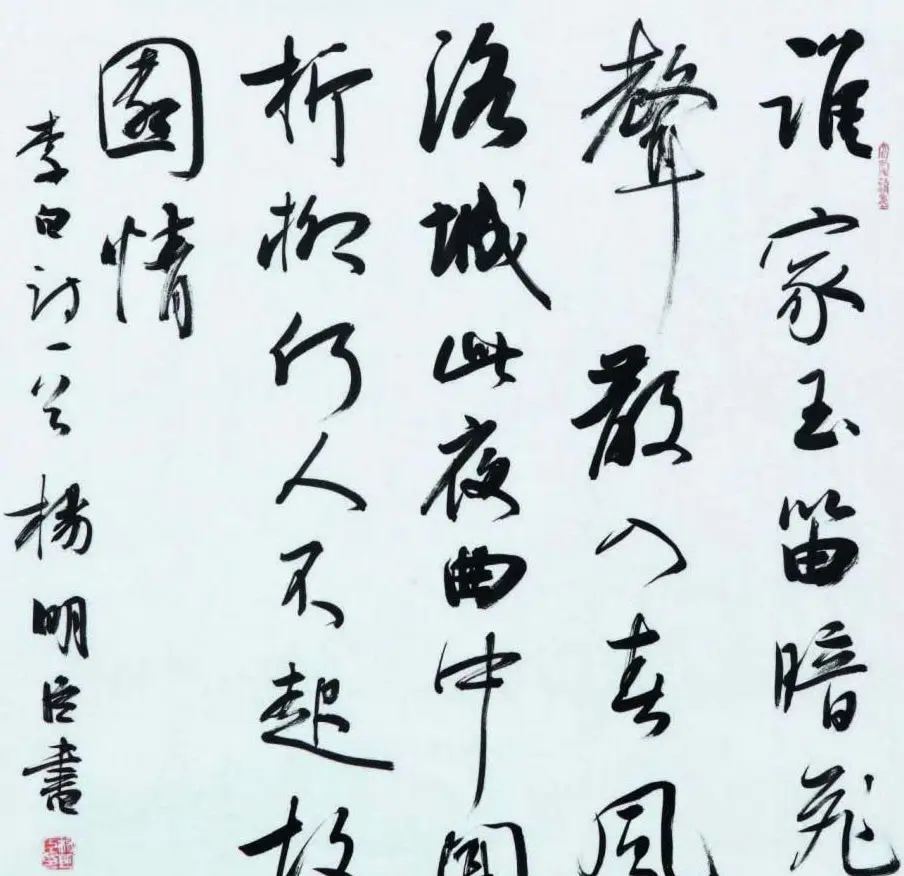 誰家玉笛暗飛
聲散入春風
洛城此夜曲中聞
折柳何人不起故
園情
李白詩一首 楊明臣書